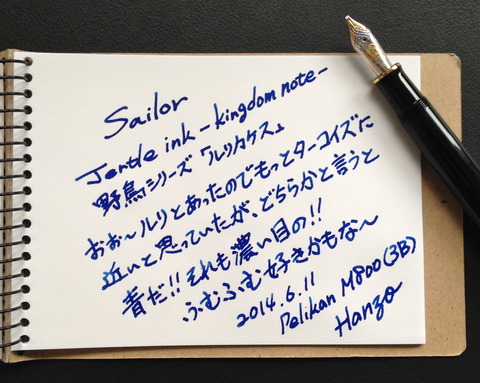 Sailor
Jentle ink - kingdom note -
野鳥シリーズ「ルリカケス」
おお〜ルリとあったのでもっとターコイズに
近いと思っていたが、どちらかと言うと
青だ!!それも濃い目の!!
ふむふむ好きかもな〜
2014.6.11
Pelikan M800(3B)
Hanzo